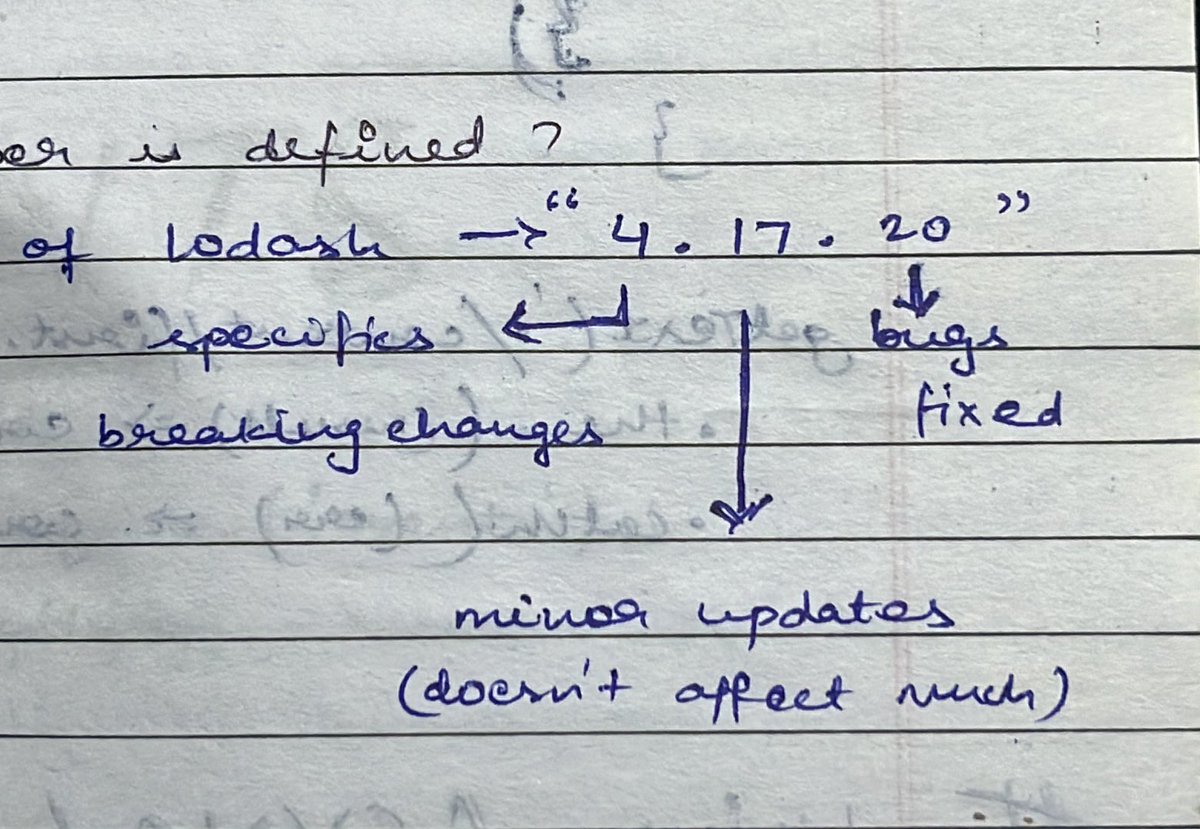 is defined ?
of lodash → “ 4 . 17 . 20 ”
specifics ← ↓ bugs
breaking changes fixed
minor updates
(doesn't affect much)